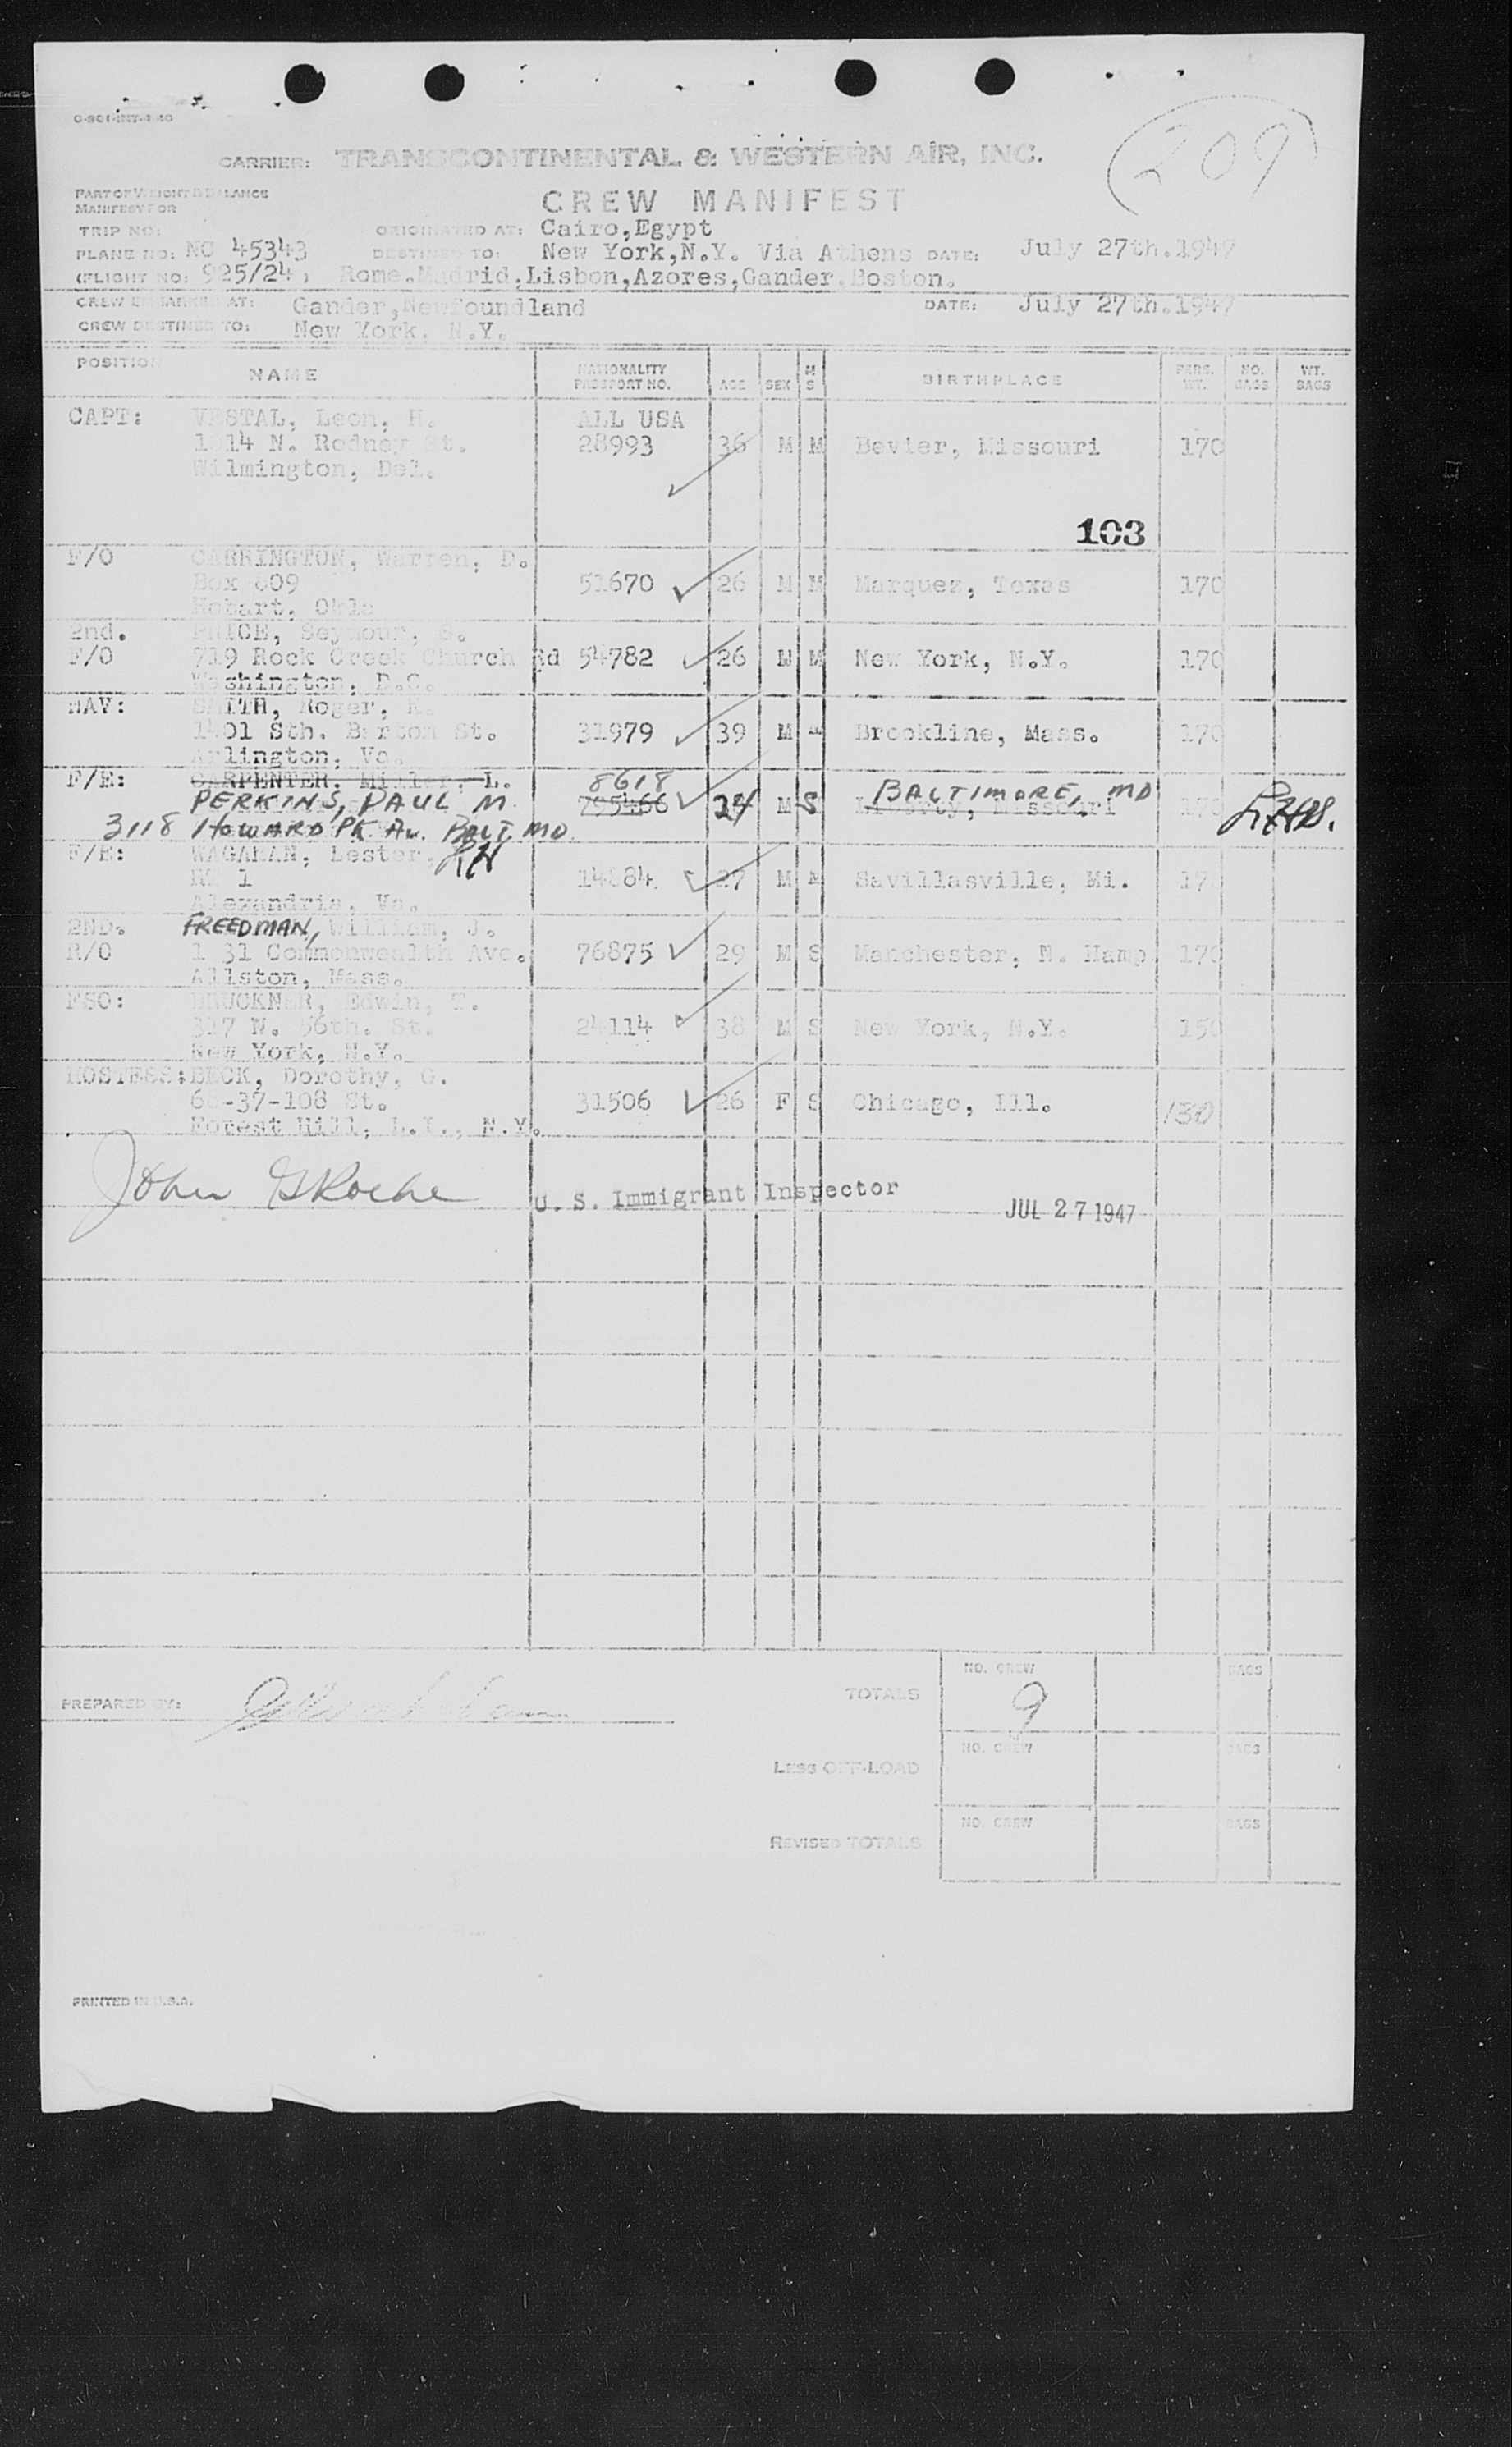 (209)
CARRIER: TRANSCONTINENTAL & WESTERN AIR, INC.
PART OF WEIGHT & BALANCE
MANIFEST FOR
CREW MANIFEST
TRIP NO: ORIGINATED AT: Cairo,Egypt
PLANE NO: NC 45343 DESTINED TO: New York,N.Y. Via Athens DATE: July 27th.1947
(FLIGHT NO: 925/24) Rome.Madrid.Lisbon,Azores,Gander.Boston.
CREW EMBARKED AT: Gander,Newfoundland DATE: July 27th.1947
CREW DESTINED TO: New York. N.Y.
POSITION NAME NATIONALITY PASSPORT NO. AGE SEX M S BIRTHPLACE PERS. WT. NO. BAGS WT. BAGS
CAPT: VESTAL, Leon, H. ALL USA
N. Rodney St. 28993 36 M M Bevier, Missouri 170
Wilmington, Del.
103
F/O CARRINGTON, Warren, D.
Box 51670 26 M M Marquez, Texas 170
Hobart, Okla
2nd. PRICE, Seymour, S.
F/O 719 Rock Creek Church Rd 54782 26 M M New York, N.Y. 170
Washington, D.C.
NAV: SMITH, Roger,
1401 Sth. Barton St. 31979 39 M M Brookline, Mass. 170
Arlington, Va.
F/E: CARPENTER, L. 8618
PERKINS, PAUL M 795466 24 M S BALTIMORE, MD Missouri 170
3118 HOWARD PK AV. BALT. MD.
F/E: WAGAMAN, Lester,
1 27 M M Savillasville, Mi.
Alexandria, Va.
2ND. FREEDMAN, William, J.
R/O Commonwealth Ave. 76875 29 M S Manchester, N. Hamp 170
Allston, Mass.
FSO: BRUCKNER, Edwin, T.
W. 56th. St. 24114 38 M S New York, N.Y. 150
New York, N.Y.
HOSTESS: BECK, Dorothy, G.
-37-108 St. 31506 26 F S Chicago, Ill. 130
Forest Hill, L.I., N.Y.
John G Roche U. S. Immigrant Inspector JUL 27 1947
NO. CREW BAGS
PREPARED BY: TOTALS 9
NO. CREW BAGS
LESS OFF-LOAD
NO. CREW BAGS
REVISED TOTALS
PRINTED IN U.S.A.